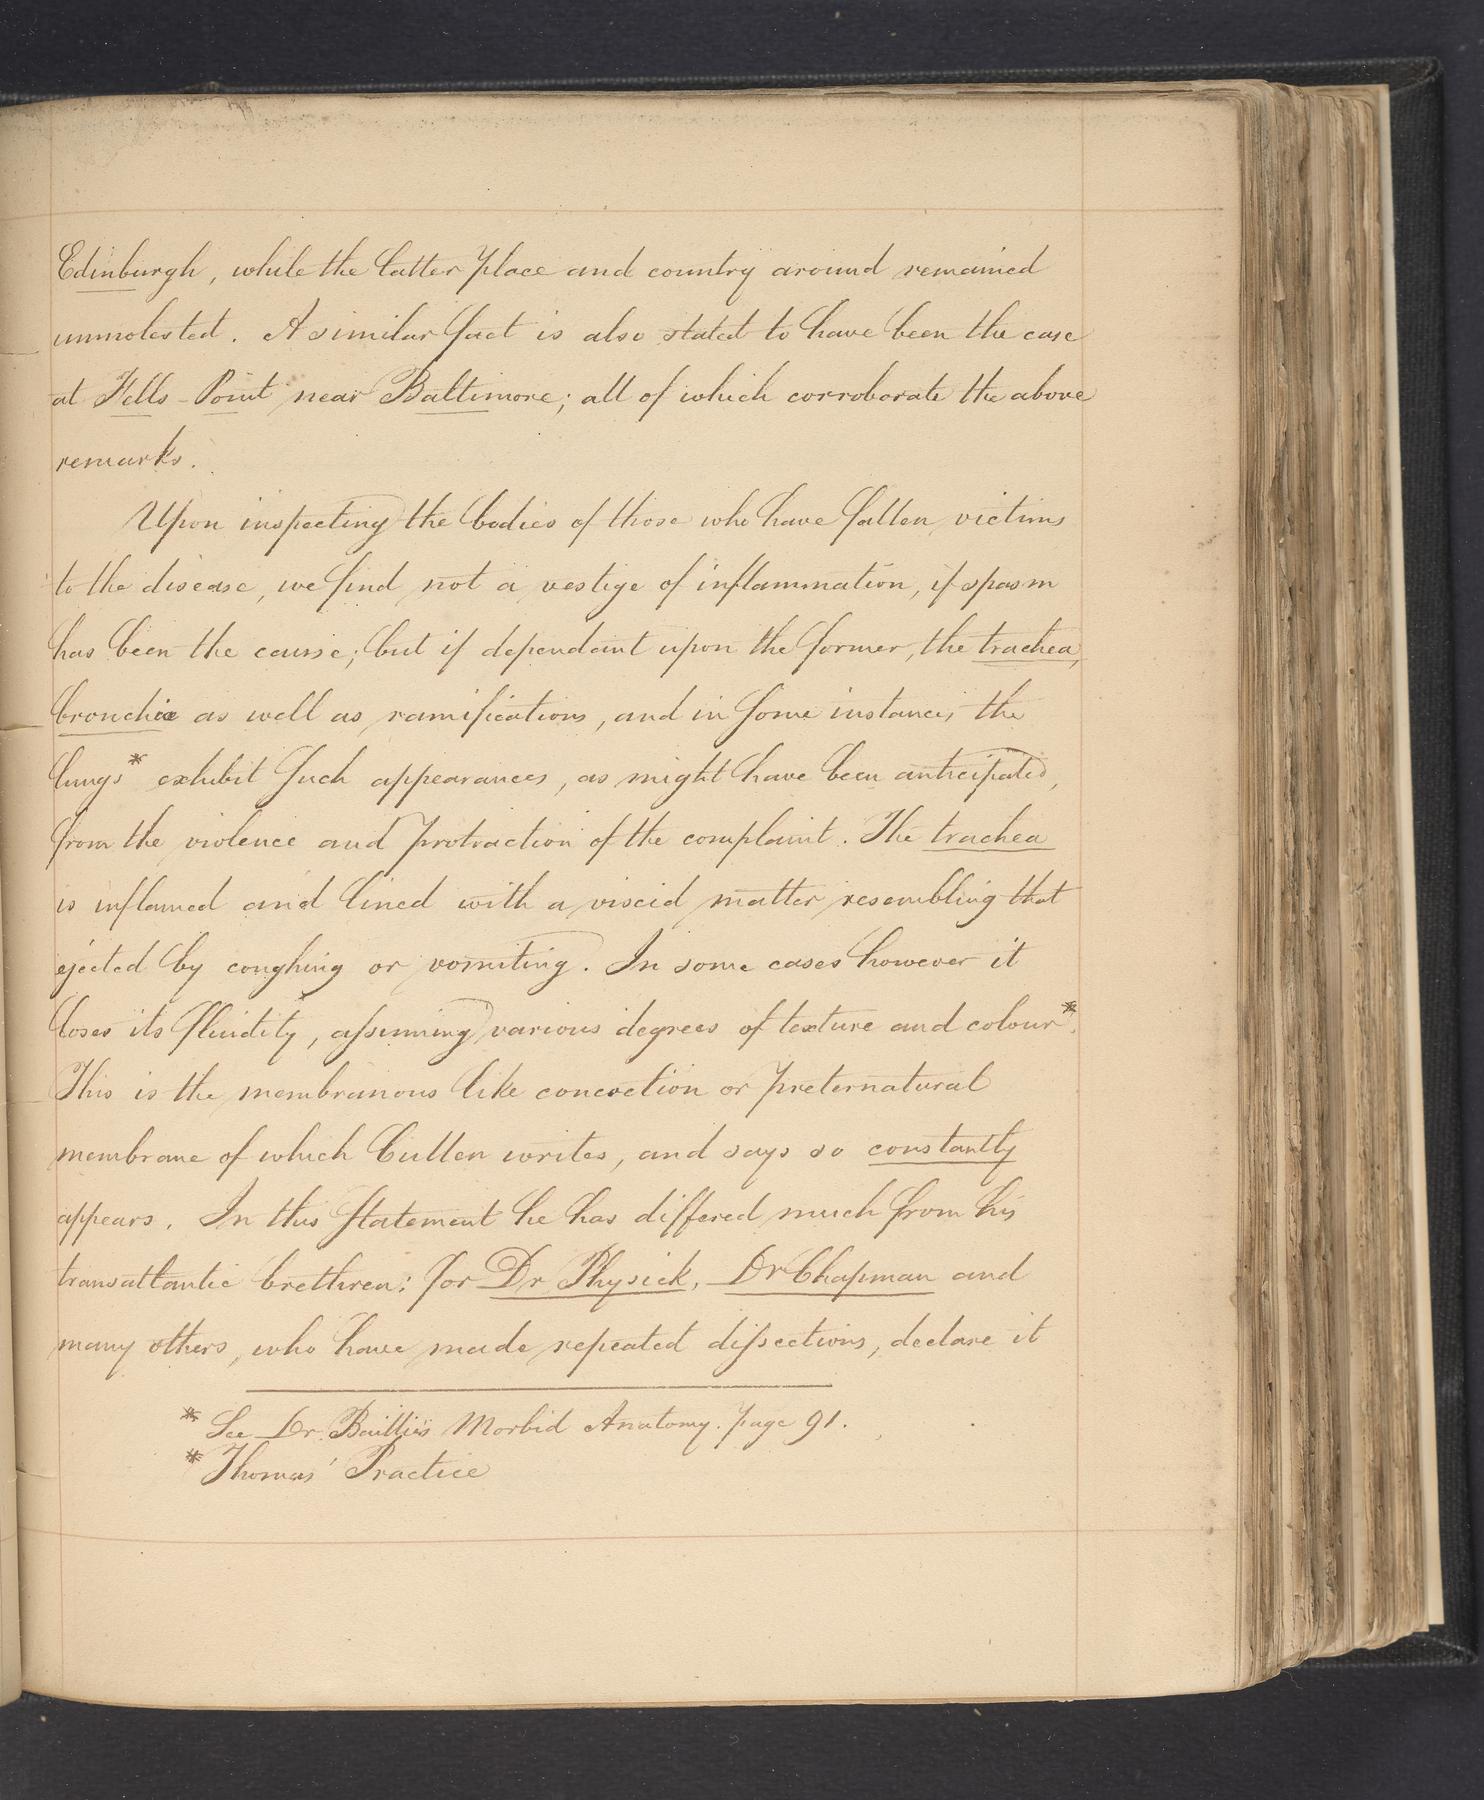 Edinburgh, while the latter place and country around remained
unmolested. A similar fact is also stated to have been the case
at Fells-Point near Baltimore; all of which corroborate the above
remarks.
Upon inspecting the bodies of those who have fallen victims
to the disease, we find not a vestige of inflammation, if spasm
has been the cause; but if dependant upon the former, the trachea,
bronchiæ as well as ramifications, and in some instances the
lungs* exhibit such appearances, as might have been anticipated,
from the violence and protraction of the complaint. The trachea
is inflamed and lined with a viscid matter resembling that
ejected by coughing or vomiting. In some cases however it
loses its fluidity, assuming various degrees of texture and colour*.
This is the membranous like concretion or preternatural
membrane of which Cullen writes, and says so constantly
appears. In this statement he has differed much from his
transatlantic brethren; for Dr Physick, Dr Chapman and
many others, who have made repeated dissections, declare it
* See Dr Baillie's Morbid Anatomy. page 91.
* Thomas' Practice